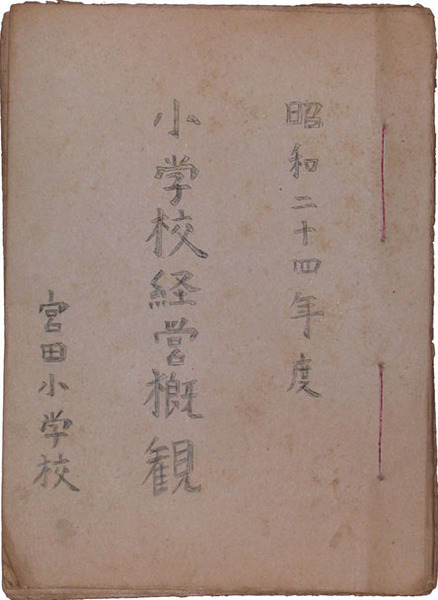 昭和二十四年度
小学校経営概観
宮田小学校